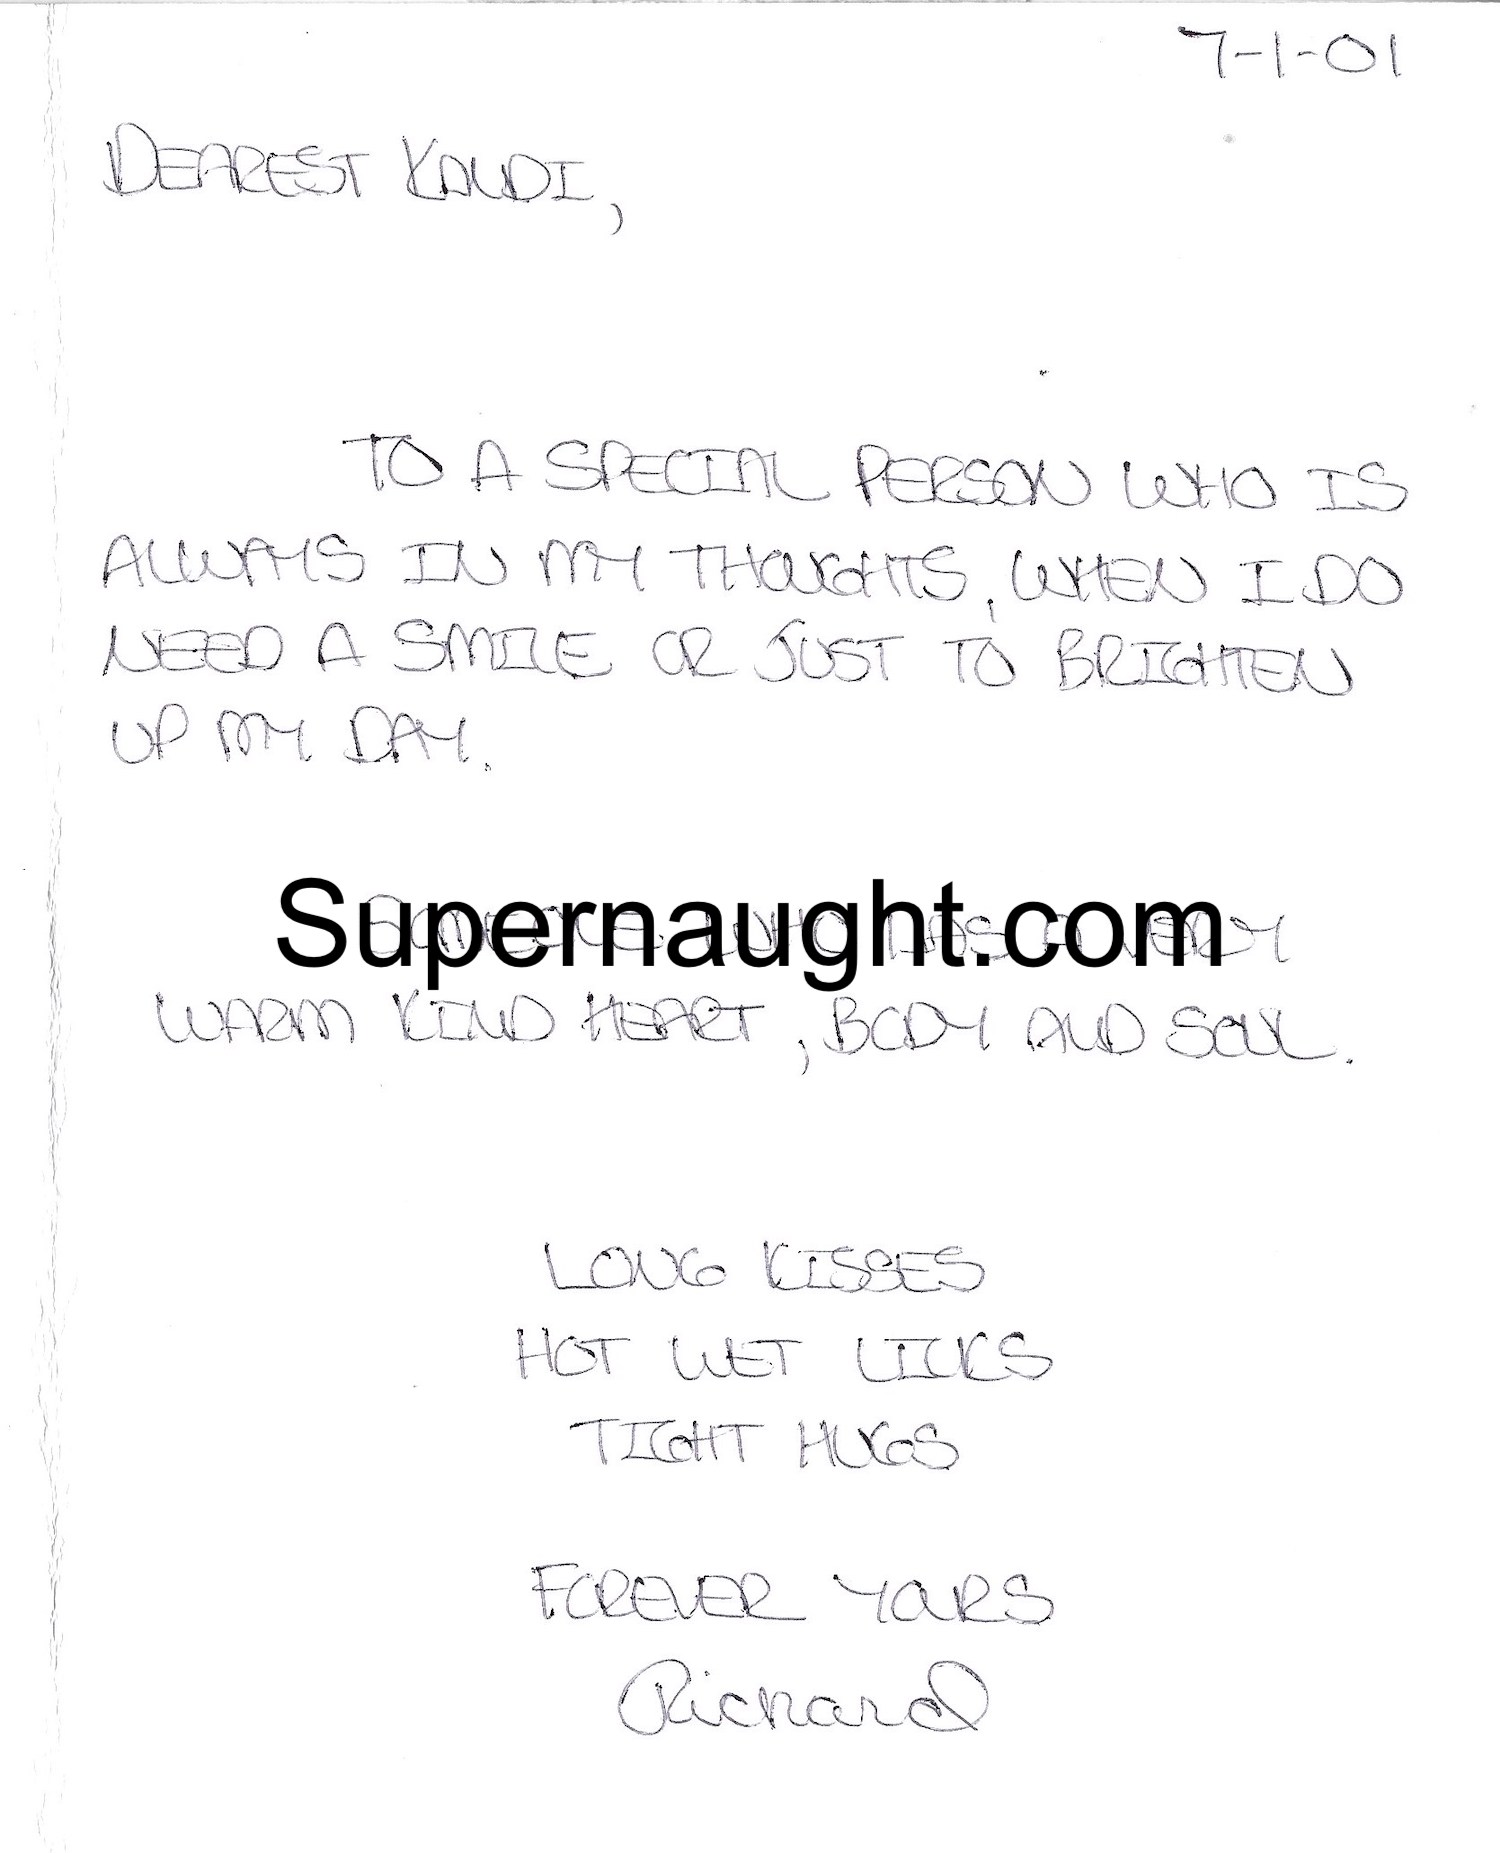 7-1-01
DEAREST KANDI,
TO A SPECIAL PERSON WHO IS
ALWAYS IN MY THOUGHTS, WHEN I DO
NEED A SMILE OR JUST TO BRIGHTEN
UP MY DAY.
SOMEONE WHO HAS A VERY
Supernaught.com
WARM KIND HEART, BODY AND SOUL.
LONG KISSES
HOT WET LICKS
TIGHT HUGS
FOREVER YOURS
Richard